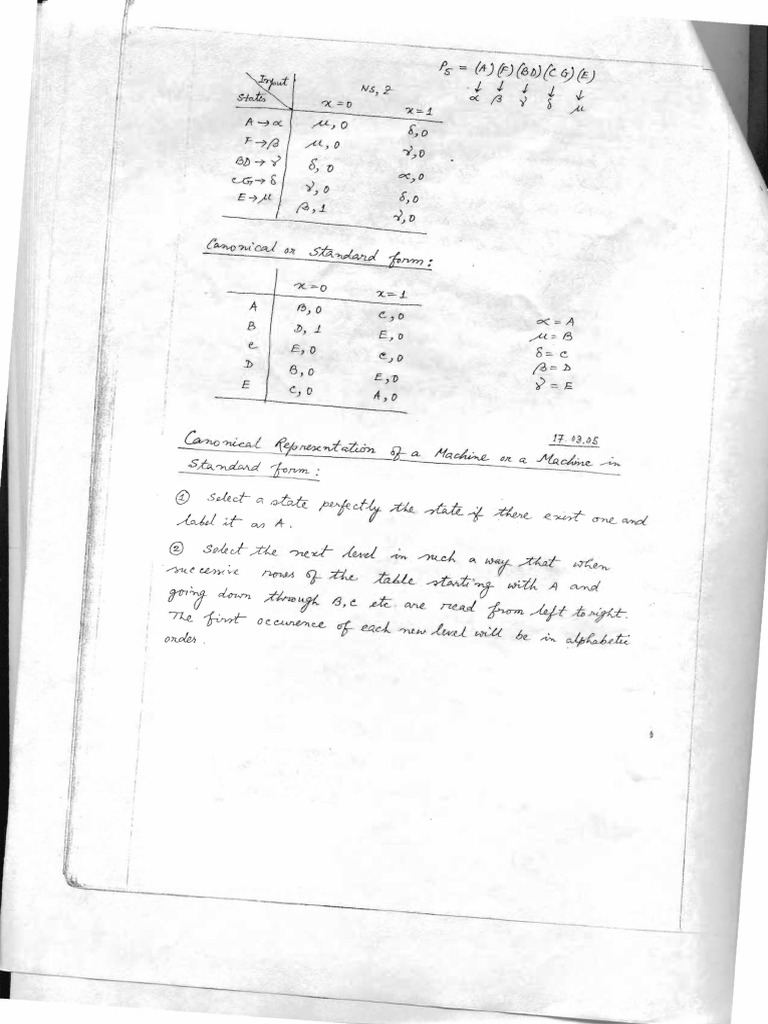 P5 = (A)(F)(BD)(CG)(E)
↓ ↓ ↓ ↓ ↓
α β γ δ μ
Input NS, Z
States x=0 x=1
A→α μ,0 δ,0
F→β μ,0 γ,0
BD→γ δ,0 α,0
CG→δ γ,0 δ,0
E→μ β,1 γ,0
Canonical or Standard form:
x=0 x=1
A B,0 C,0
B D,1 E,0
C E,0 C,0
D B,0 E,0
E C,0 A,0
α = A
μ = B
δ = C
β = D
γ = E
17.03.05
Canonical Representation of a Machine or a Machine in
Standard form:
① Select a state perfectly the state if there exist one and
label it as A.
② Select the next level in such a way that when
successive rows of the table starting with A and
going down through B,C etc are read from left to right.
The first occurence of each new level will be in alphabetic
order.